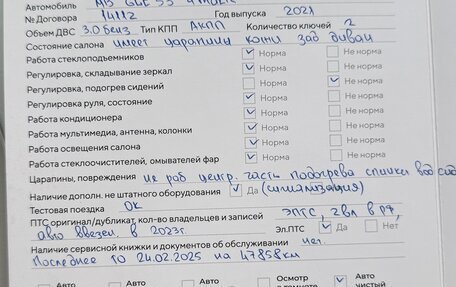 Автомобиль МБ GLE 53 4matic
№ Договора 14112 Год выпуска 2021
Объем ДВС 3.0 бенз Тип КПП АКПП Количество ключей 2
Состояние салона имеет царапины кожи зад диван
Работа стеклоподъемников Норма Не норма
Регулировка, складывание зеркал Норма Не норма
Регулировка, подогрев сидений Норма Не норма
Регулировка руля, состояние Норма Не норма
Работа кондиционера Норма Не норма
Работа мультимедиа, антенна, колонки Норма Не норма
Работа освещения салона Норма Не норма
Работа стеклоочистителей, омывателей фар Норма Не норма
Царапины, повреждения не раб центр. часть подогрева спинки вод сид
Наличие дополн. не штатного оборудования Да (сигнализация)
Тестовая поездка ОК
ПТС оригинал/дубликат, кол-во владельцев и записей ЭПТС, 2 вл в РФ,
авто ввезен. в 2023г. Эл.ПТС Да Нет
Наличие сервисной книжки и документов об обслуживании нет.
Последнее ТО 24.02.2025 на 47858км
Авто Авто Авто Осмотр Авто
в темноте чистый